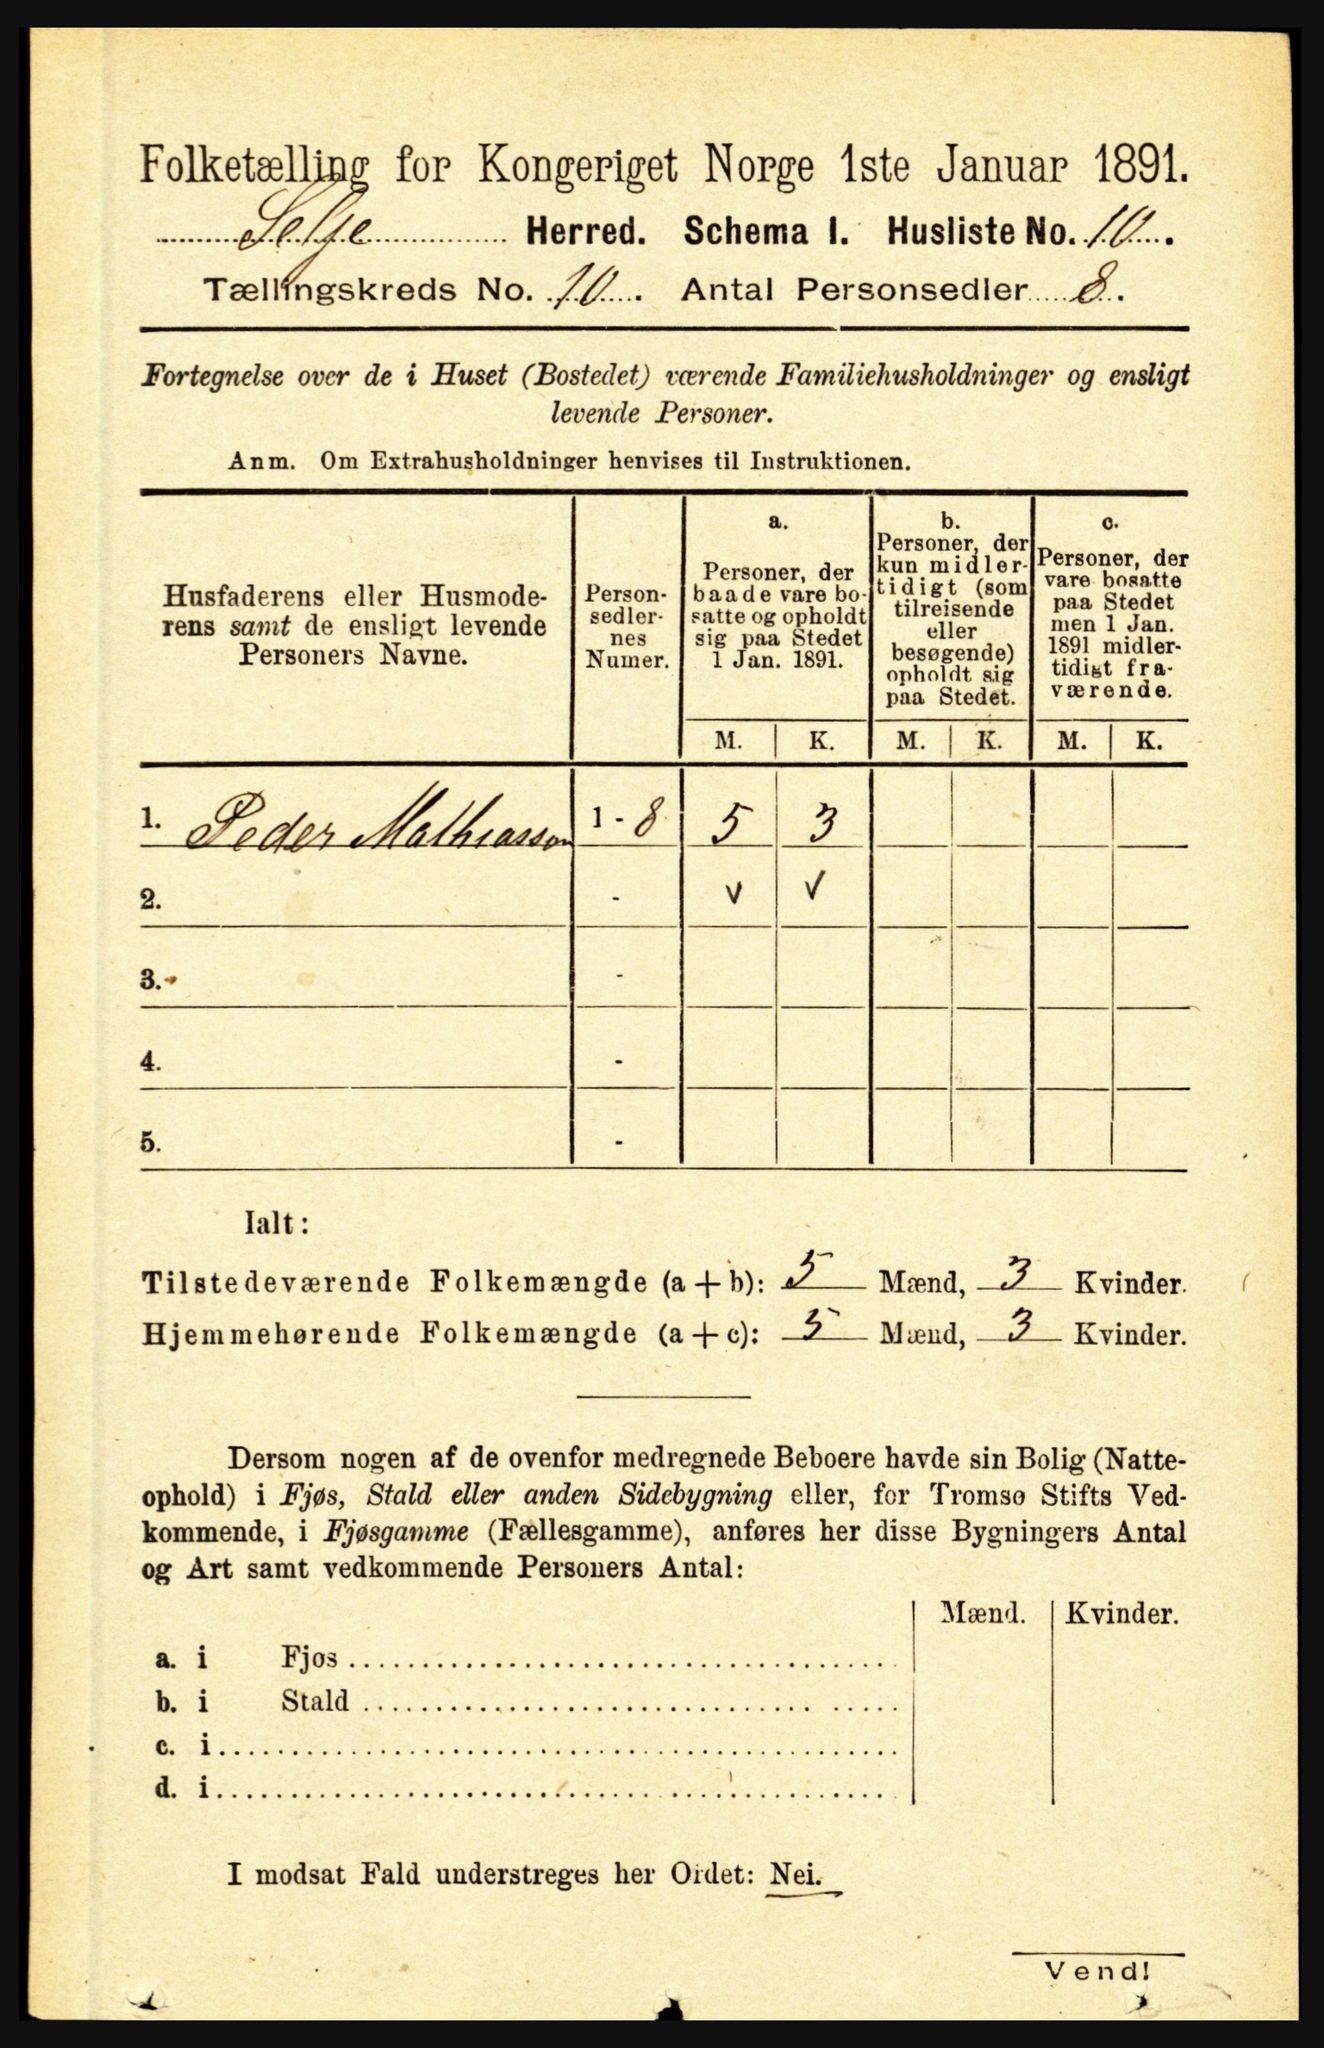 Folketælling for Kongeriget Norge 1ste Januar 1891.
Selje Herred. Schema I. Husliste No. 10.
Tællingskreds No. 10. Antal Personsedler 8.
Fortegnelse over de i Huset (Bostedet) værende Familiehusholdninger og ensligt
levende Personer.
Anm. Om Extrahusholdninger henvises til Instruktionen.
Husfaderens eller Husmode-
rens samt de ensligt levende
Personers Navne.
Person-
sedler-
nes
Numer.
a.
Personer, der
baade vare bo-
satte og opholdt
sig paa Stedet
1 Jan. 1891.
b.
Personer, der
kun midler-
tidigt (som
tilreisende
eller
besøgende)
opholdt sig
paa Stedet.
c.
Personer, der
vare bosatte
paa Stedet
men 1 Jan.
1891 midler-
tidigt fra-
værende.
M. K. M. K. M. K.
1. Peder Mathiasson 1 - 8 5 3
2. - v v
3. -
4. -
5. -
Ialt:
Tilstedeværende Folkemængde (a + b): 5 Mænd, 3 Kvinder.
Hjemmehørende Folkemængde (a + c): 5 Mænd, 3 Kvinder.
Dersom nogen af de ovenfor medregnede Beboere havde sin Bolig (Natte-
ophold) i Fjøs, Stald eller anden Sidebygning eller, for Tromsø Stifts Ved-
kommende, i Fjøsgamme (Fællesgamme), anføres her disse Bygningers Antal
og Art samt vedkommende Personers Antal:
Mænd. Kvinder.
a. i Fjøs
b. i Stald
c. i
d. i
I modsat Fald understreges her Ordet: Nei.
Vend!